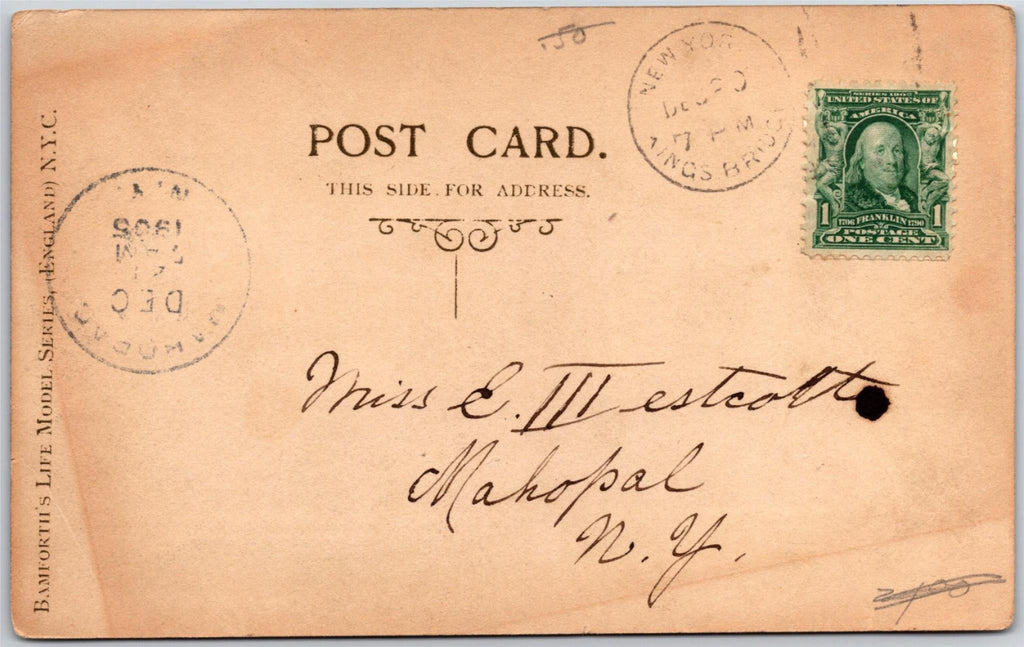 POST CARD.
THIS SIDE FOR ADDRESS.
BAMFORTH'S LIFE MODEL SERIES, (ENGLAND) N.Y.C.
NEW YOR
7 PM
KINGSBRIDGE
SERIES 1902
UNITED STATES OF
AMERICA
1 1706 FRANKLIN 1790 1
POSTAGE
ONE CENT
MAHOPAC
DEC
21
7 AM
1905
N.Y.
Miss E. Westcott
Mahopal
N.Y.
150